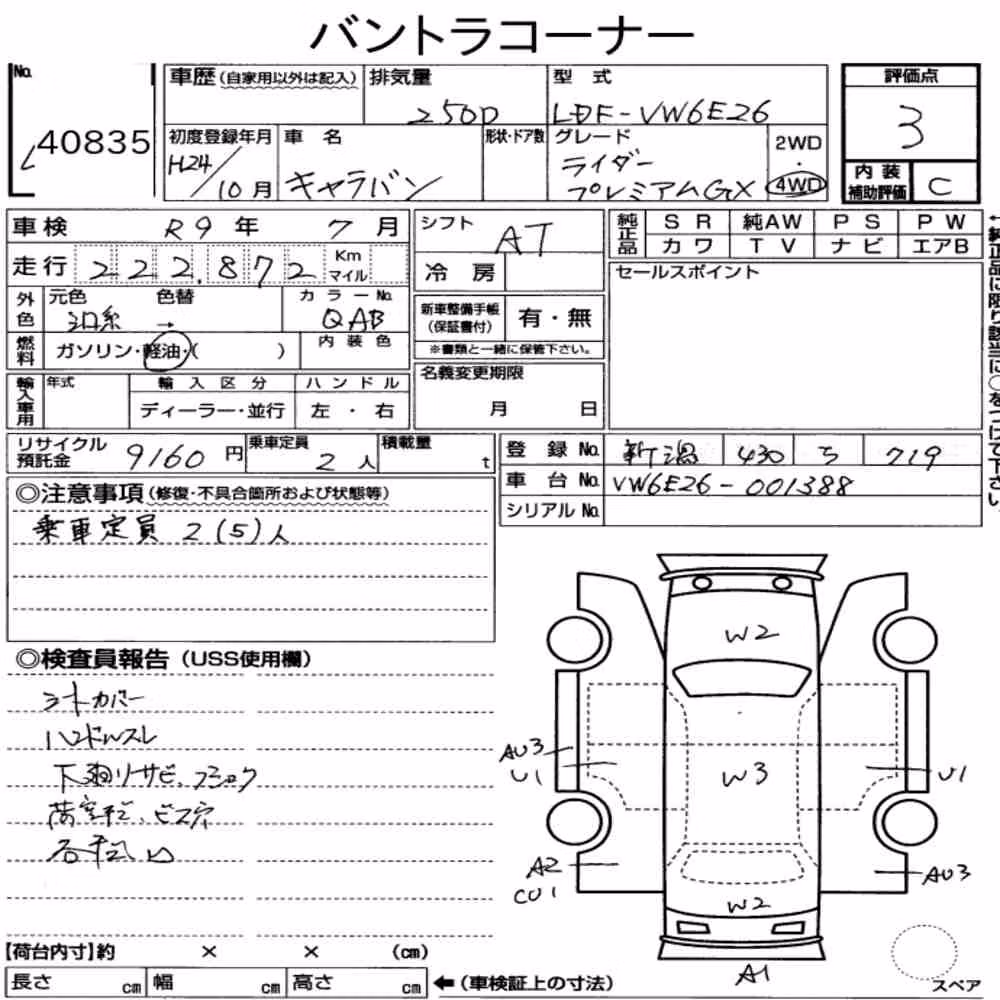 バントラコーナー
No. 40835
車歴(自家用以外は記入)
排気量 2500
型式 LDF-VW6E26
評価点 3
初度登録年月 H24/10月
車名 キャラバン
形状・ドア数
グレード ライダー プレミアムGX
2WD・4WD
内装補助評価 C
車検 R9年 7月
シフト AT
純正品 SR 純AW PS PW
カワ TV ナビ エアB
走行 222,872 Km マイル
冷房
セールスポイント
外色 元色 色替 カラーNo.
シロ系 → QAB
新車整備手帳(保証書付) 有・無
※書類と一緒に保管下さい。
燃料 ガソリン・軽油・( )
内装色
輸入車用 年式 輸入区分 ハンドル
ディーラー・並行 左・右
名義変更期限
月 日
リサイクル預託金 9160円
乗車定員 2人
積載量 t
登録No. 新潟 430 ち 719
車台No. VW6E26-001388
シリアルNo.
◎注意事項(修復・不具合箇所および状態等)
乗車定員 2(5)人
◎検査員報告(USS使用欄)
シートカバー
ハンドルスレ
下廻りサビ、
ビス穴
W2
W3
W2
AU3
U1
U1
A2
CU1
AU3
A1
【荷台内寸】約 × × (cm)
長さ cm 幅 cm 高さ cm ←(車検証上の寸法)
スペア
←純正品に限り該当に○をつけて下さい。